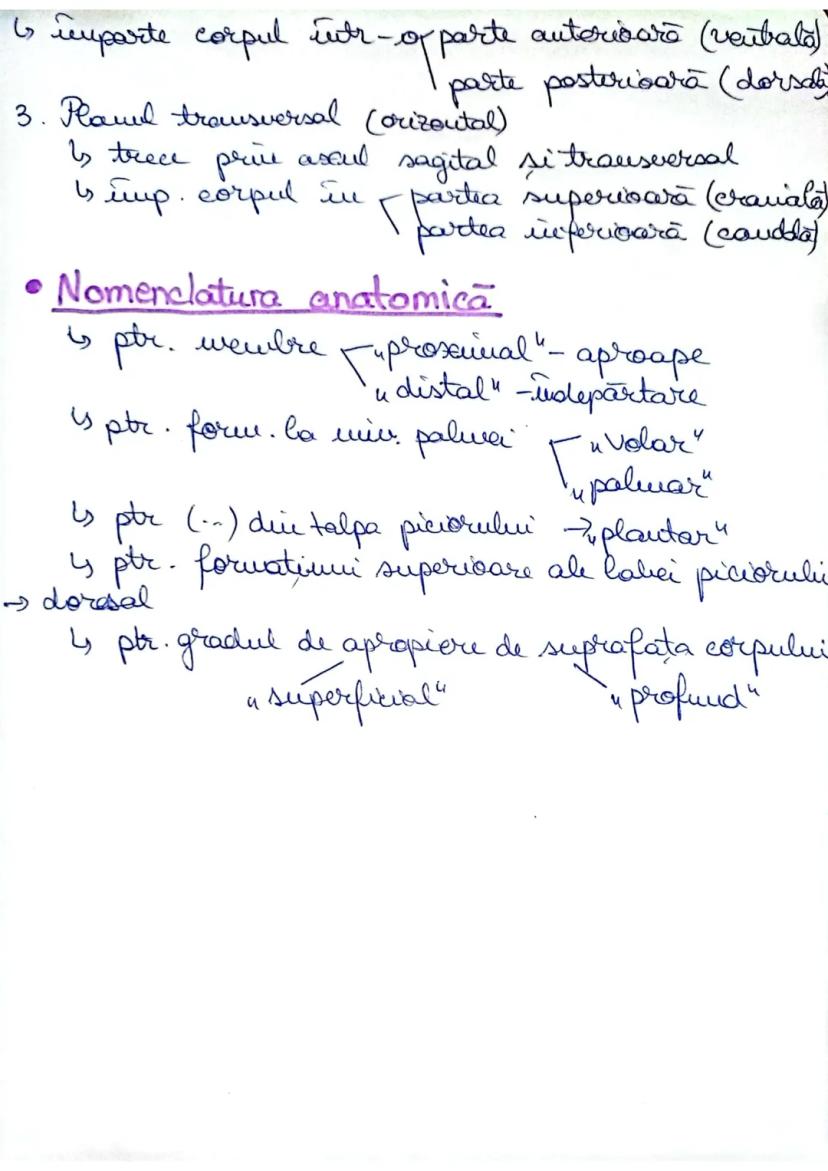 ↳ împarte corpul într-o parte anterioară (ventrală)
parte posterioară (dorsală)
3. Planul transversal (orizontal)
↳ trece prin axul sagital și transversal
↳ împ. corpul în partea superioară (cranială)
partea inferioară (caudală)
• Nomenclatura anatomică
↳ ptr. membre „proximal" - aproape
„distal" - îndepărtare
↳ ptr. form. la niv. palmei „volar"
„palmar"
↳ ptr (...) din talpa piciorului → „plantar"
↳ ptr. formațiuni superioare ale labei piciorului
→ dorsal
↳ ptr. gradul de apropiere de suprafața corpului
„superficial" „profund"